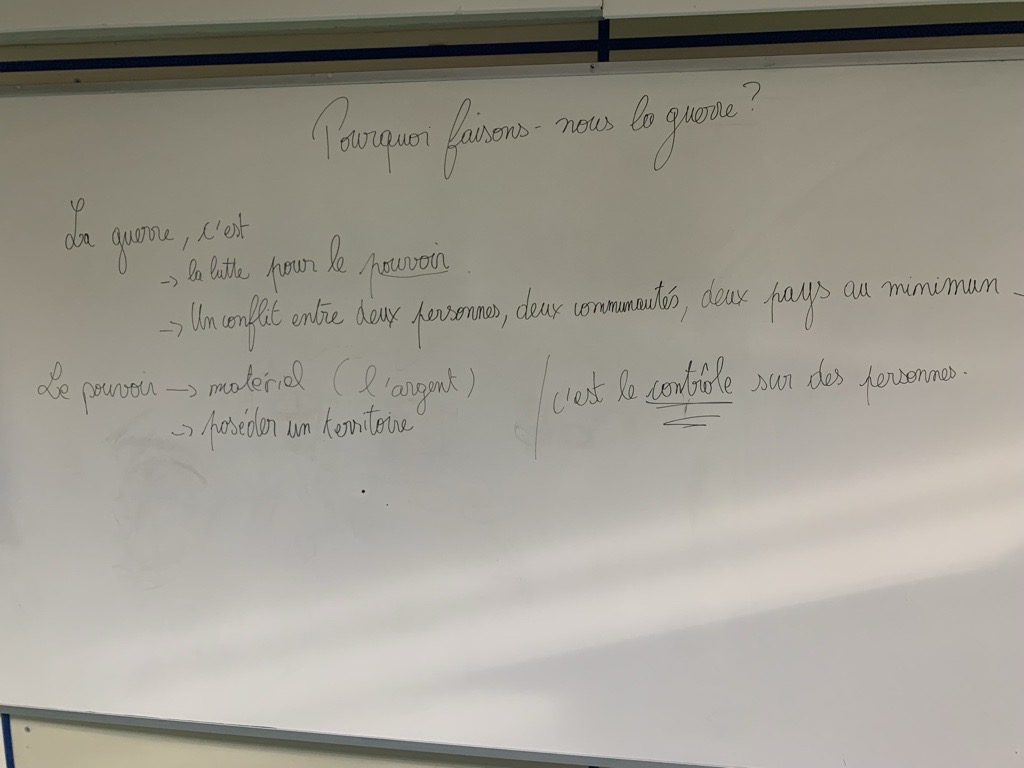 Pourquoi faisons-nous la guerre?
La guerre, c'est
→ la lutte pour le pouvoir.
→ Un conflit entre deux personnes, deux communautés, deux pays au minimun -
Le pouvoir → matériel (l'argent) / c'est le contrôle sur des personnes.
→ poséder un territoire